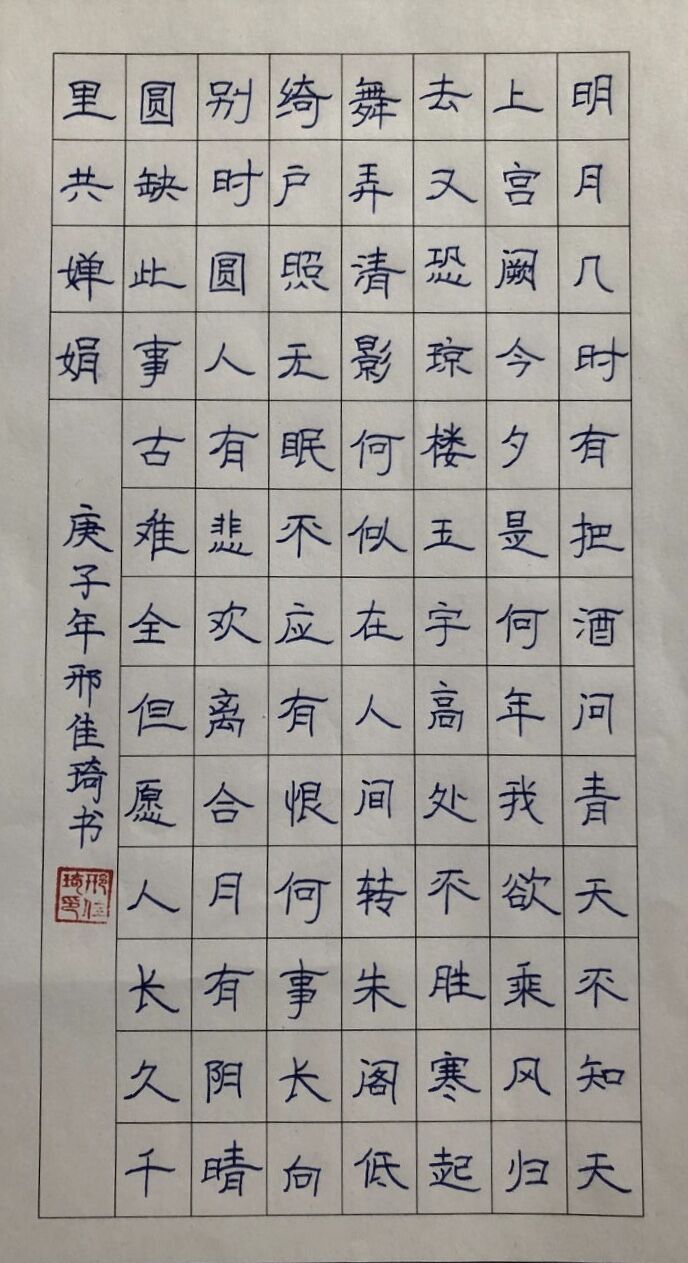 明月几时有把酒问青天不知天
上宫阙今夕是何年我欲乘风归
去又恐琼楼玉宇高处不胜寒起
舞弄清影何似在人间转朱阁低
绮户照无眠不应有恨何事长向
别时圆人有悲欢离合月有阴晴
圆缺此事古难全但愿人长久千
里共婵娟
庚子年邢佳琦书
邢佳琦印